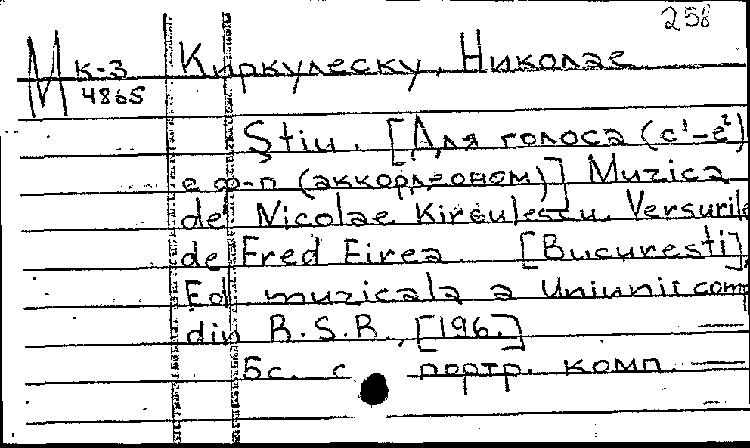 258
М к-3 Киркулеску, Николае
4865
Ştiu. [Для голоса (c¹-e²)
с ф-п (аккордеоном)] Muzica
de Nicolae Kirculescu. Versurile
de Fred Firea [Bucureşti],
Ed muzicala a Uniunii comp
din R.S.R., [196.]
5с. с портр. комп.